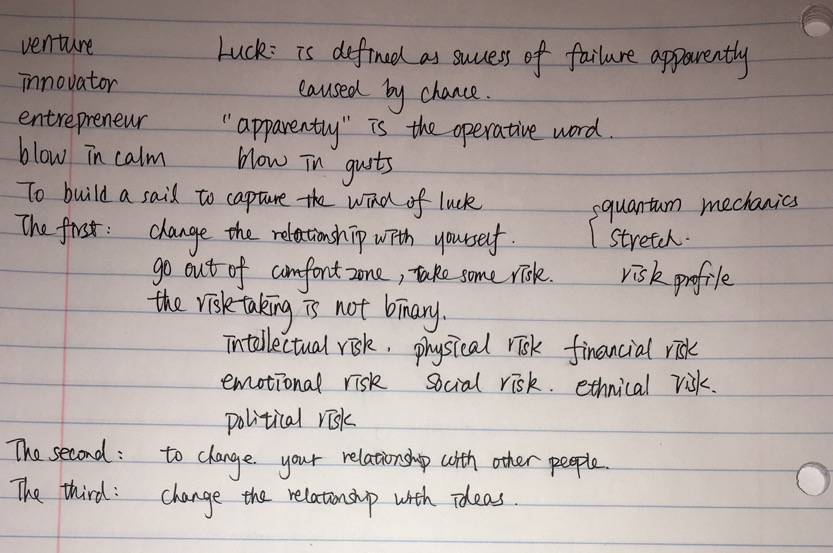 venture Luck: is defined as success of failure apparently
innovator caused by chance.
entrepreneur "apparently" is the operative word.
blow in calm blow in gusts
To build a sail to capture the wind of luck
quantum mechanics
The first: change the relationship with yourself. stretch.
go out of comfort zone, take some risk. risk profile
the risk taking is not binary.
intellectual risk. physical risk financial risk
emotional risk social risk. ethnical risk.
political risk
The second: to change your relationship with other people.
The third: change the relationship with ideas.